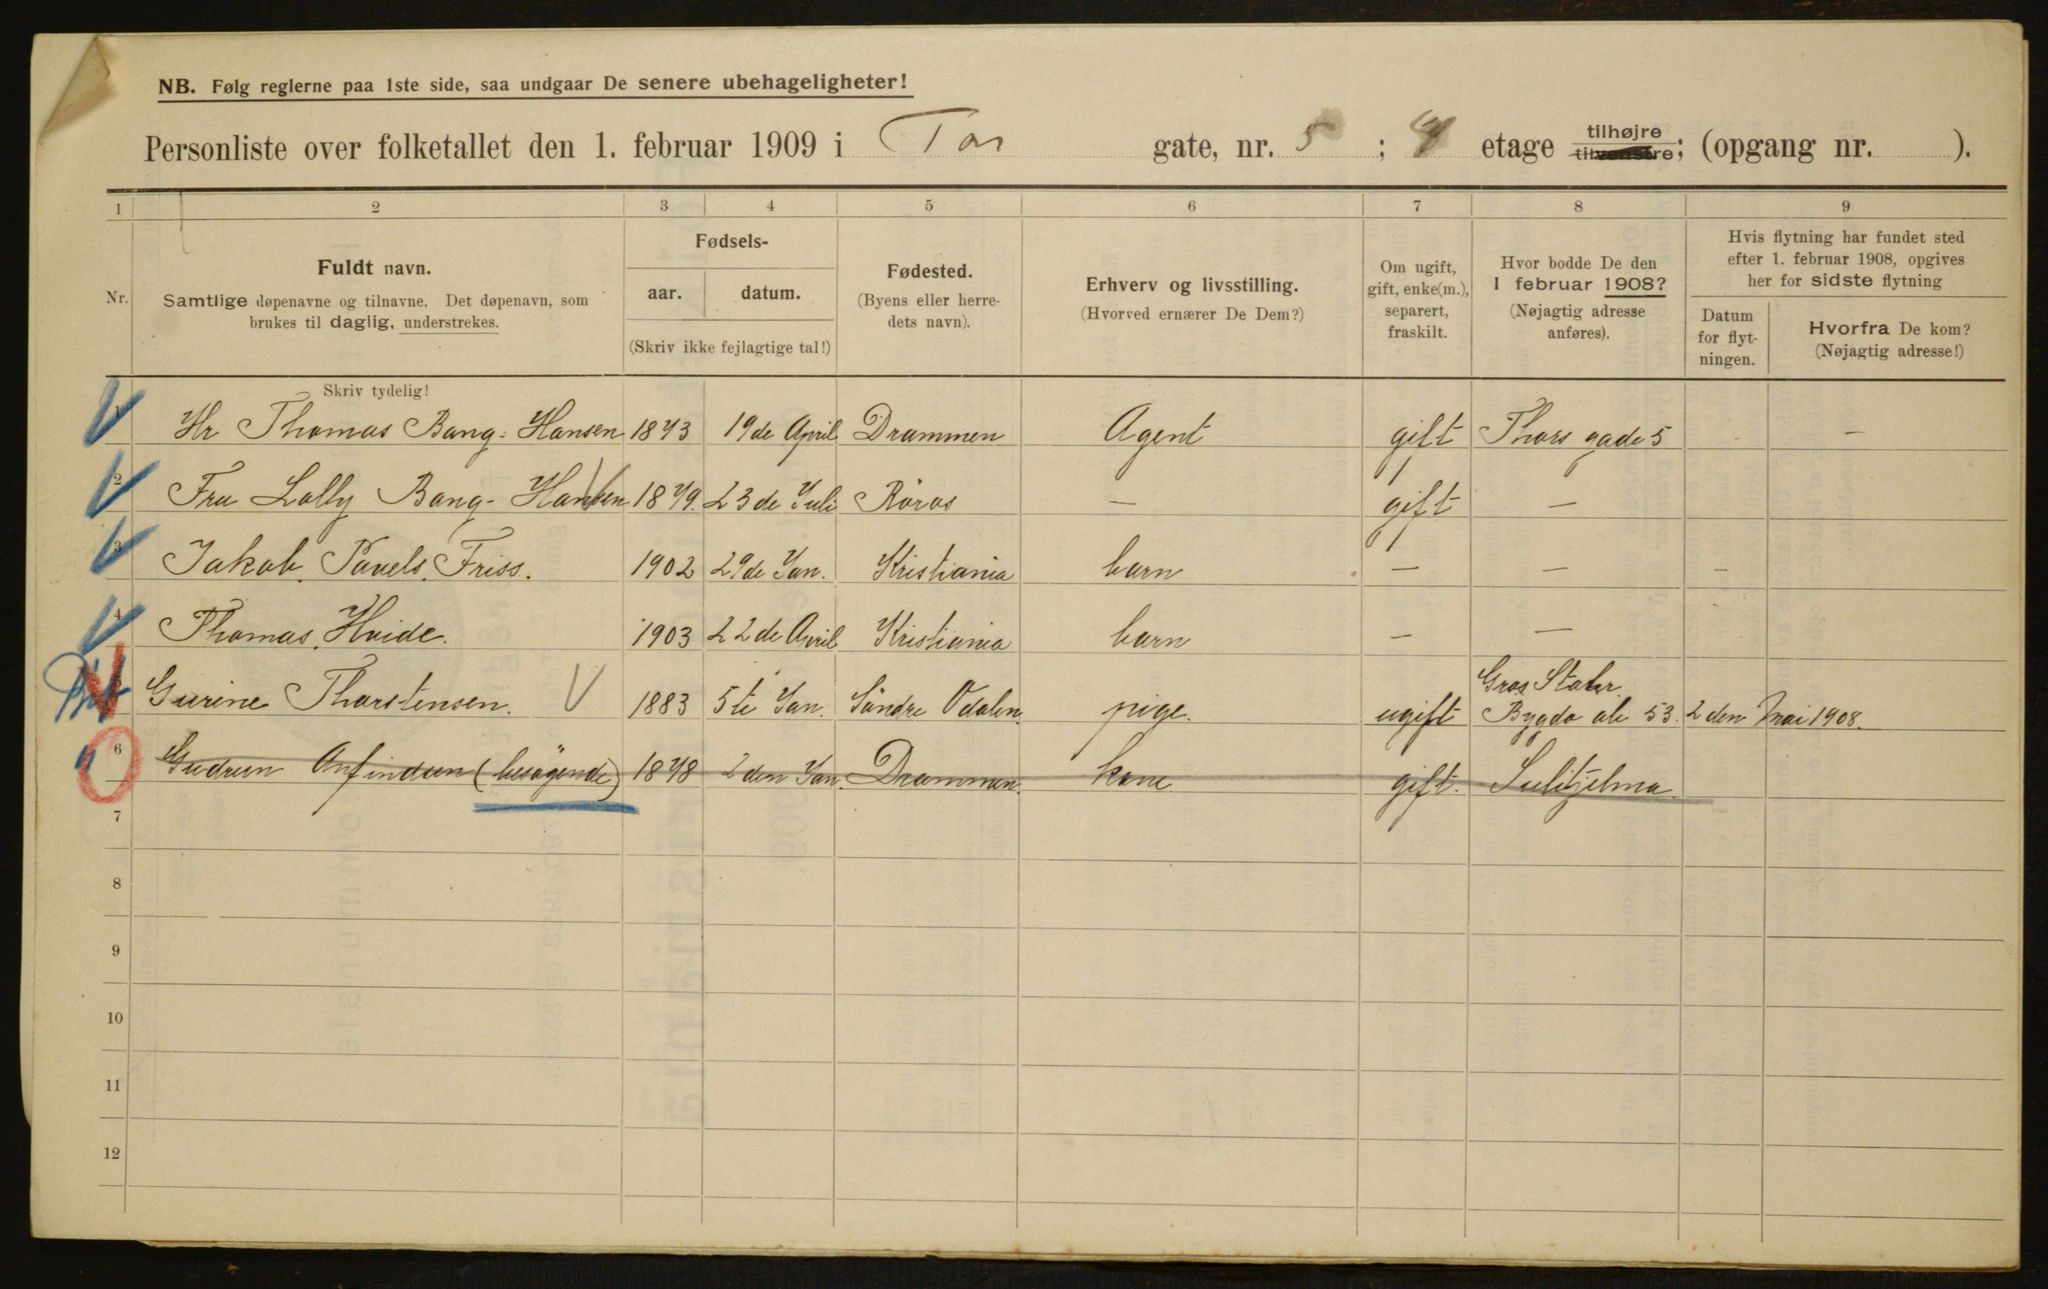 NB. Følg reglerne paa 1ste side, saa undgaar De senere ubehageligheter!
Personliste over folketallet den 1. februar 1909 i Tor gate, nr. 5 ; etage tilhøjre tilvenstre; (opgang nr. ).
1 2 3 4 5 6 7 8 9
Nr.
Fuldt navn.
Samtlige døpenavne og tilnavne. Det døpenavn, som
brukes til daglig, understrekes.
Fødsels-
aar. datum.
(Skriv ikke fejlagtige tal!)
Fødested.
(Byens eller herre-
dets navn).
Erhverv og livsstilling.
(Hvorved ernærer De Dem?)
Om ugift,
gift, enke(m.),
separert,
fraskilt.
Hvor bodde De den
1 februar 1908?
(Nøjagtig adresse
anføres).
Hvis flytning har fundet sted
efter 1. februar 1908, opgives
her for sidste flytning
Datum
for flyt-
ningen.
Hvorfra De kom?
(Nøjagtig adresse!)
Skriv tydelig!
1 Hr Thomas Bang-Hansen 1873 19de April Drammen Agent gift Thors gade 5 —
2 Fru Lolly Bang-Hansen 1879. 23de Juli Röros — gift —
3 Jakob. Pavels. Friss. 1902 29de Jan. Kristiania barn — — —
4 Thomas. Hvide. 1903 22de April Kristiania barn — —
5 Gurine Thorstensen. 1883 5te Jan. Söndre Odalen. pige. ugift Bygdø ale 53. 2den Mai 1908.
6 Gudrun (besøgende) 1878 2den Jan. Drammen. kone gift. Sulitjelma.
7
8
9
10
11
12